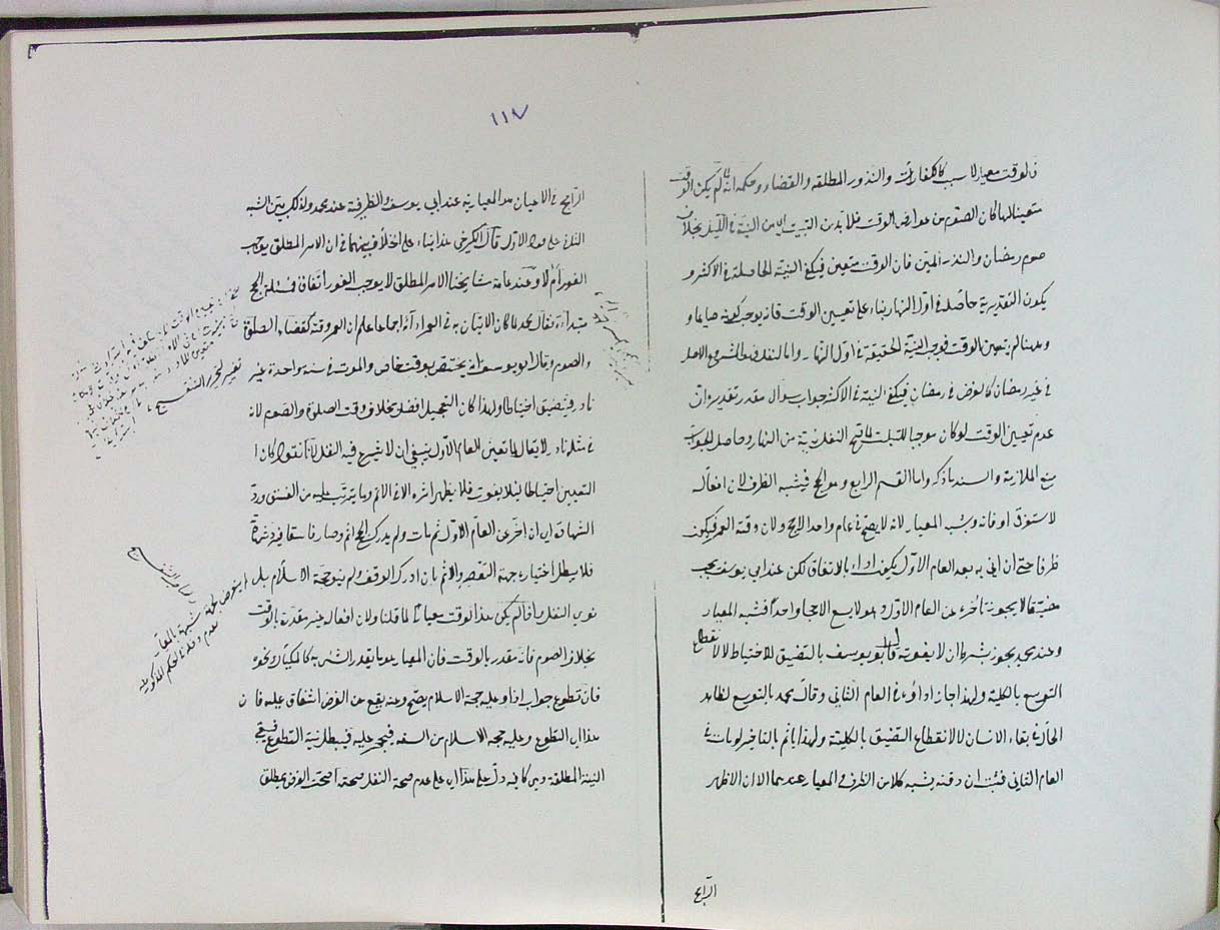 فالوقت معيار لا سبب كالكفارات والنذور المطلقة والقضاء وحكمه انه لما لم يكن الوقت
متعينا لها كان الصوم من عوارض الوقت فلا بد من التبييت اي من النية في الليل بخلاف
صوم رمضان والنذر المعين فان الوقت متعين فيكفي النية الحاصلة في الاكثر و
يكون التقديرية حاصلة في اول النهار بناء على تعيين الوقت فانه يوجب كونه صايما و
وههنا لم يتعين الوقت فوجب النية الحقيقة في اول النهار واما النفل فهو المشروع الاصلي
في غير رمضان كالفرض في رمضان فيكفي النية في الاكثر جواب سوال مقدر تقديره ان
عدم تعيين الوقت لو كان موجبا للتبييت لما صح النفل بنية من النهار وحاصل الجواب
منع الملازمة والسند ما ذكر واما القسم الرابع وهو الحج فيشبه الظرف لان افعاله
لا تستغرق اوقاته ويشبه المعيار لانه لا يصح في عام واحد الا حج ولان وقته العمر فيكون
ظرفا حتى ان اتى به بعد العام الاول يكون اداء بالاتفاق لكن عند ابي يوسف يجب
مضيقا لا يجوز تاخره عن العام الاول وهو لا يسع الا حجا واحدا فشبه المعيار
وعند محمد يجوز بشرط ان لا يفوته قال ابو يوسف بالتضيق للاحتياط لا لانقطاع
التوسع بالكلية ولهذا جاز اداؤه في العام الثاني وقال محمد بالتوسع لظاهر
الحال في بقاء الانسان لا لانقطاع التضيق بالكلية ولهذا ياثم بالتاخير لو مات في
العام الثاني فثبت ان وقته يشبه كلا من الظرف والمعيار عندهما الا ان الاظهر
الراجح
١١٨
الراجح في الاعيان هو المعيارية عند ابي يوسف والظرفية عند محمد ولذلك بين الشبه
الثاني على هذا الاول قال الكرخي هذا بناء على الخلاف بينهما في ان الامر المطلق يوجب
الفور ام لا وعند عامة مشايخنا الامر المطلق لا يوجب الفور اتفاقا فمسئلة الحج
مبتداءة فقال محمد لما كان الاتيان به في العمر اداء اجماعا علم ان العمر وقته كقضاء الصلوة
والصوم وقال ابو يوسف انه يختص بوقت خاص والموت في سنة واحدة غير
نادر فيتضيق احتياطا ولهذا كان التعجيل افضل بخلاف وقت الصلوة والصوم لانه
في مثله نادر لا يقال لما تعين العام الاول ينبغي ان لا يشرع فيه النفل لانا نقول كان ا
التعيين احتياطا لئلا يفوت فلا يظهر اثره الا في الاثم وما يترتب عليه من الفسق ورد
الشهادة اي ان اخر عن العام الاول ثم مات ولم يدرك الحج اثم وصار فاسقا فيرد شهادته
فلا يبطل اختياره جهة التقصير والاثم بان ادرك الوقف ولم ينو حجة الاسلام بل
نوى النفل وانما لم يكن هذا الوقت معيارا لما قلنا ولان افعاله غير مقدرة بالوقت
بخلاف الصوم فانه مقدر بالوقت فان المعيار هو ما يقدر الشئ به كالمكيال ونحوه
فان تطوع جواب اذا وعليه حجة الاسلام يصح وعنده يقع عن الفرض اشفاقا عليه فان
هذا اي التطوع وعليه حجة الاسلام من السفه فيحجر عليه فيبطل نية التطوع فيبقى
النية المطلقة وهي كافية دل على هذا اي على عدم صحة النفل صحته اي صحة الفرض بمطلق
تغيير لتحرير التنقيح